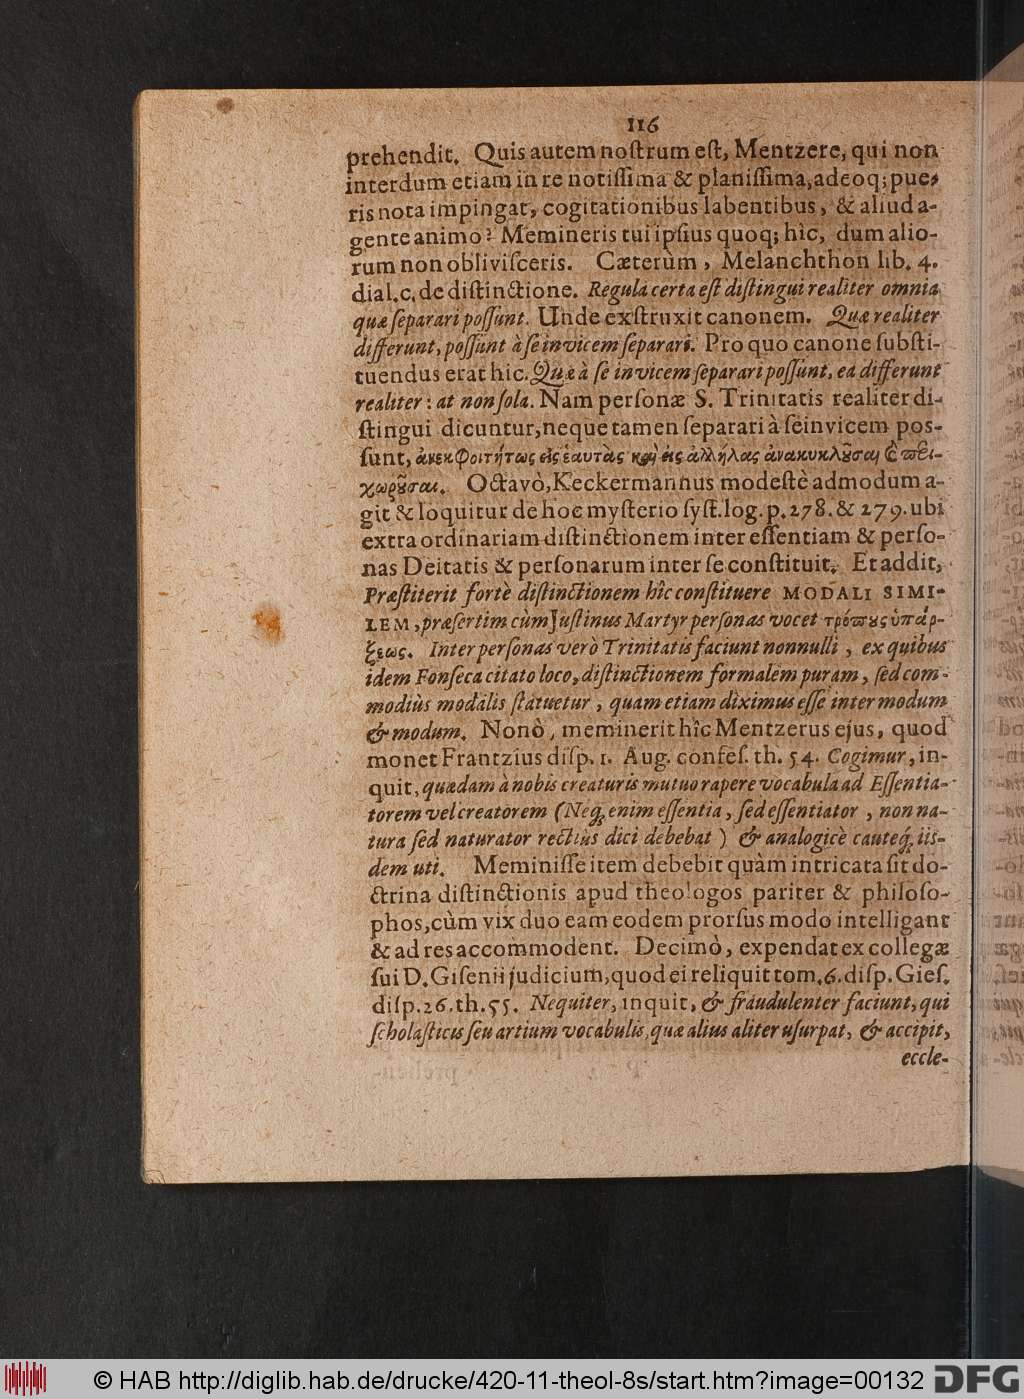 116
prehendit. Quis autem nostrum est, Mentzere, qui non
interdum etiam in re notissima & planissima, adeoq; pue-
ris nota impingat, cogitationibus labentibus, & aliud a-
gente animo? Memineris tui ipsius quoq; hìc, dum alio-
rum non oblivisceris. Cæterùm, Melanchthon lib. 4.
dial. c. de distinctione. Regula certa est distingui realiter omnia
quæ separari possunt. Unde exstruxit canonem. Quæ realiter
differunt, possunt à se invicem separari. Pro quo canone substi-
tuendus erat hic. Quæ à se invicem separari possunt, ea differunt
realiter: at non sola. Nam personæ S. Trinitatis realiter di-
stingui dicuntur, neque tamen separari à se invicem pos-
sunt, ἀνεκφοιτήτως εἰς ἑαυτὰς καὶ εἰς ἀλλήλας ἀνακυκλοῦσαι & πεϱι-
χωροῦσαι. Octavò, Keckermannus modestè admodum a-
git & loquitur de hoc mysterio syst. log. p. 278. & 279. ubi
extraordinariam distinctionem inter essentiam & perso-
nas Deitatis & personarum inter se constituit. Et addit,
Præstiterit fortè distinctionem hîc constituere MODALI SIMI-
LEM, præsertim cùm Justinus Martyr personas vocet τρόπους ὑπάρ-
ξεως. Inter personas verò Trinitatis faciunt nonnulli, ex quibus
idem Fonseca citato loco, distinctionem formalem puram, sed com-
modiùs modalis statuetur, quam etiam diximus esse inter modum
& modum. Nonò, meminerit hîc Mentzerus ejus, quod
monet Frantzius disp. 1. Aug. confes. th. 54. Cogimur, in-
quit, quædam à nobis creaturis mutuo rapere vocabula ad Essentia-
torem vel creatorem (Neq; enim essentia, sed essentiator, non na-
tura sed naturator rectiùs dici debebat) & analogicè cauteq; iis-
dem uti. Meminisse item debebit quàm intricata sit do-
ctrina distinctionis apud theologos pariter & philoso-
phos, cùm vix duo eam eodem prorsus modo intelligant
& ad res accommodent. Decimò, expendat ex collegæ
sui D. Gisenii judicium, quod ei reliquit tom. 6. disp. Gies.
disp. 26. th. 55. Nequiter, inquit, & fraudulenter faciunt, qui
scholasticis seu artium vocabulis, quæ alius aliter usurpat, & accipit,
eccle-
© HAB http://diglib.hab.de/drucke/420-11-theol-8s/start.htm?image=00132
DFG